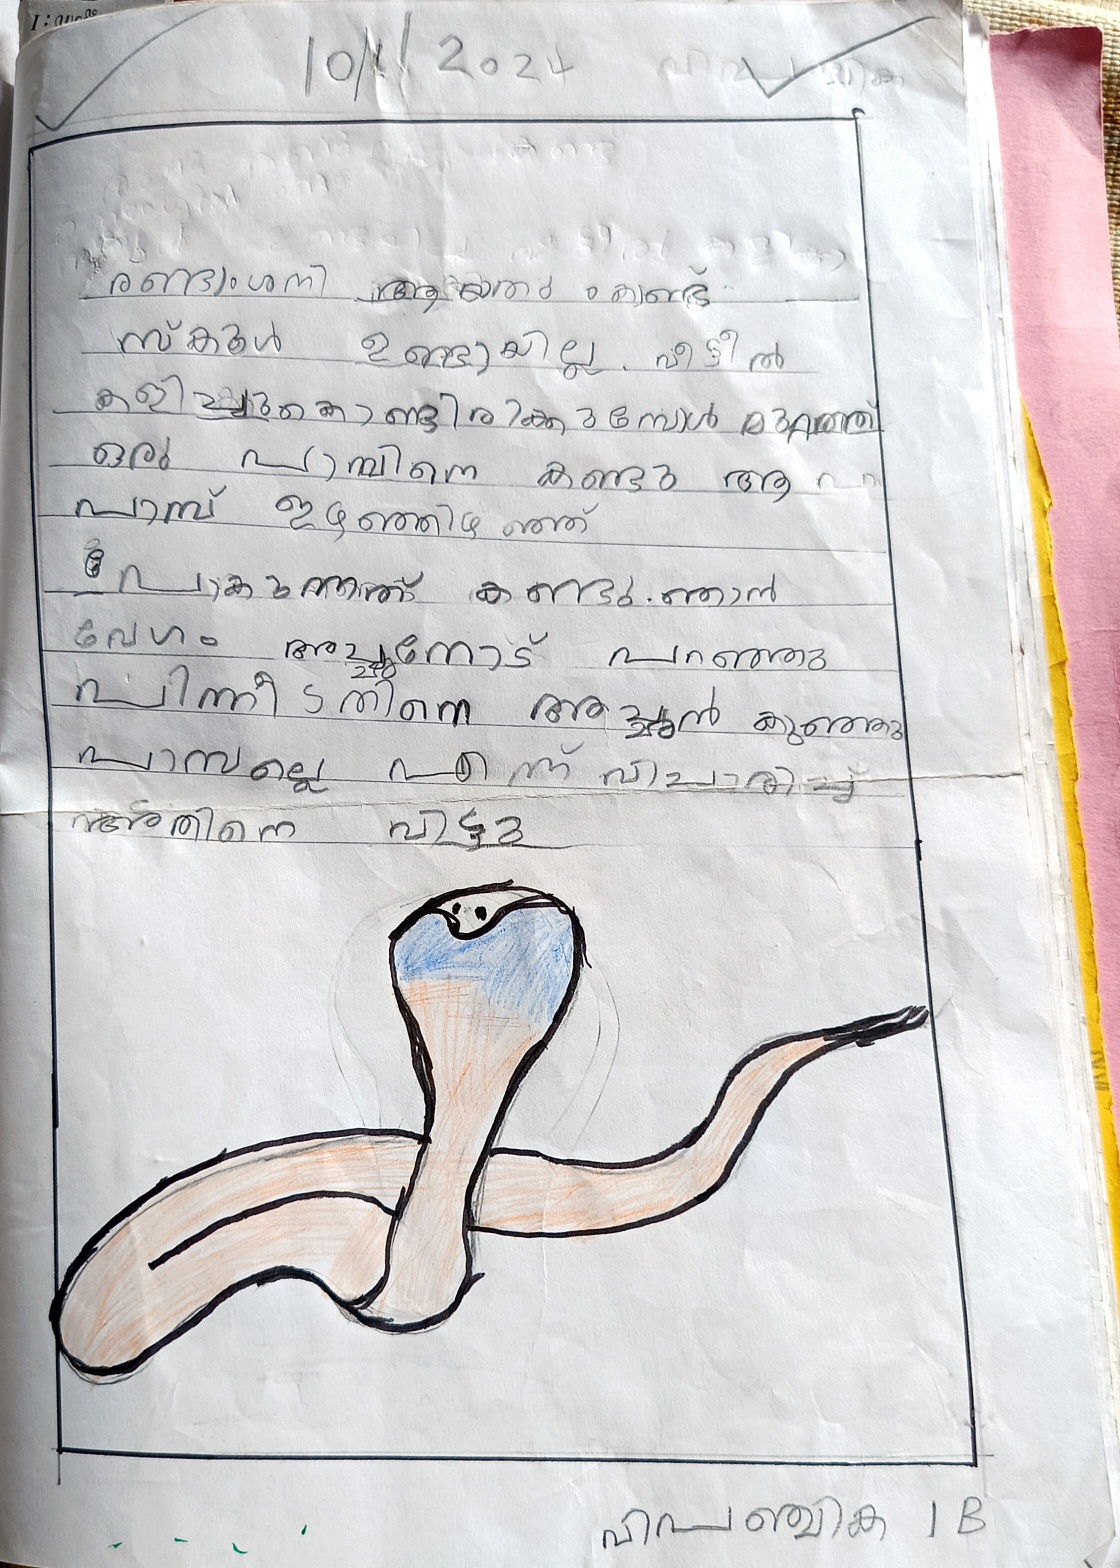 10/1/2024
രണ്ടാംശനി ആയതു കൊണ്ട്
സ്കൂൾ ഉണ്ടായില്ല. വീട്ടിൽ
കളിച്ചുകൊണ്ടിരിക്കുമ്പോൾ മുറ്റത്ത്
ഒരു പാമ്പിനെ കണ്ടു ആ
പാമ്പ് ഇഴഞ്ഞിഴഞ്ഞ്
പോകുന്നത് കണ്ടു. ഞാൻ
വേഗം അച്ഛനോട് പറഞ്ഞു
പിന്നീടതിനെ അച്ഛൻ കുഞ്ഞു
പാമ്പല്ലെ എന്ന് വിചാരിച്ച്
അതിനെ വിട്ടു
വിപഞ്ചിക 1 B